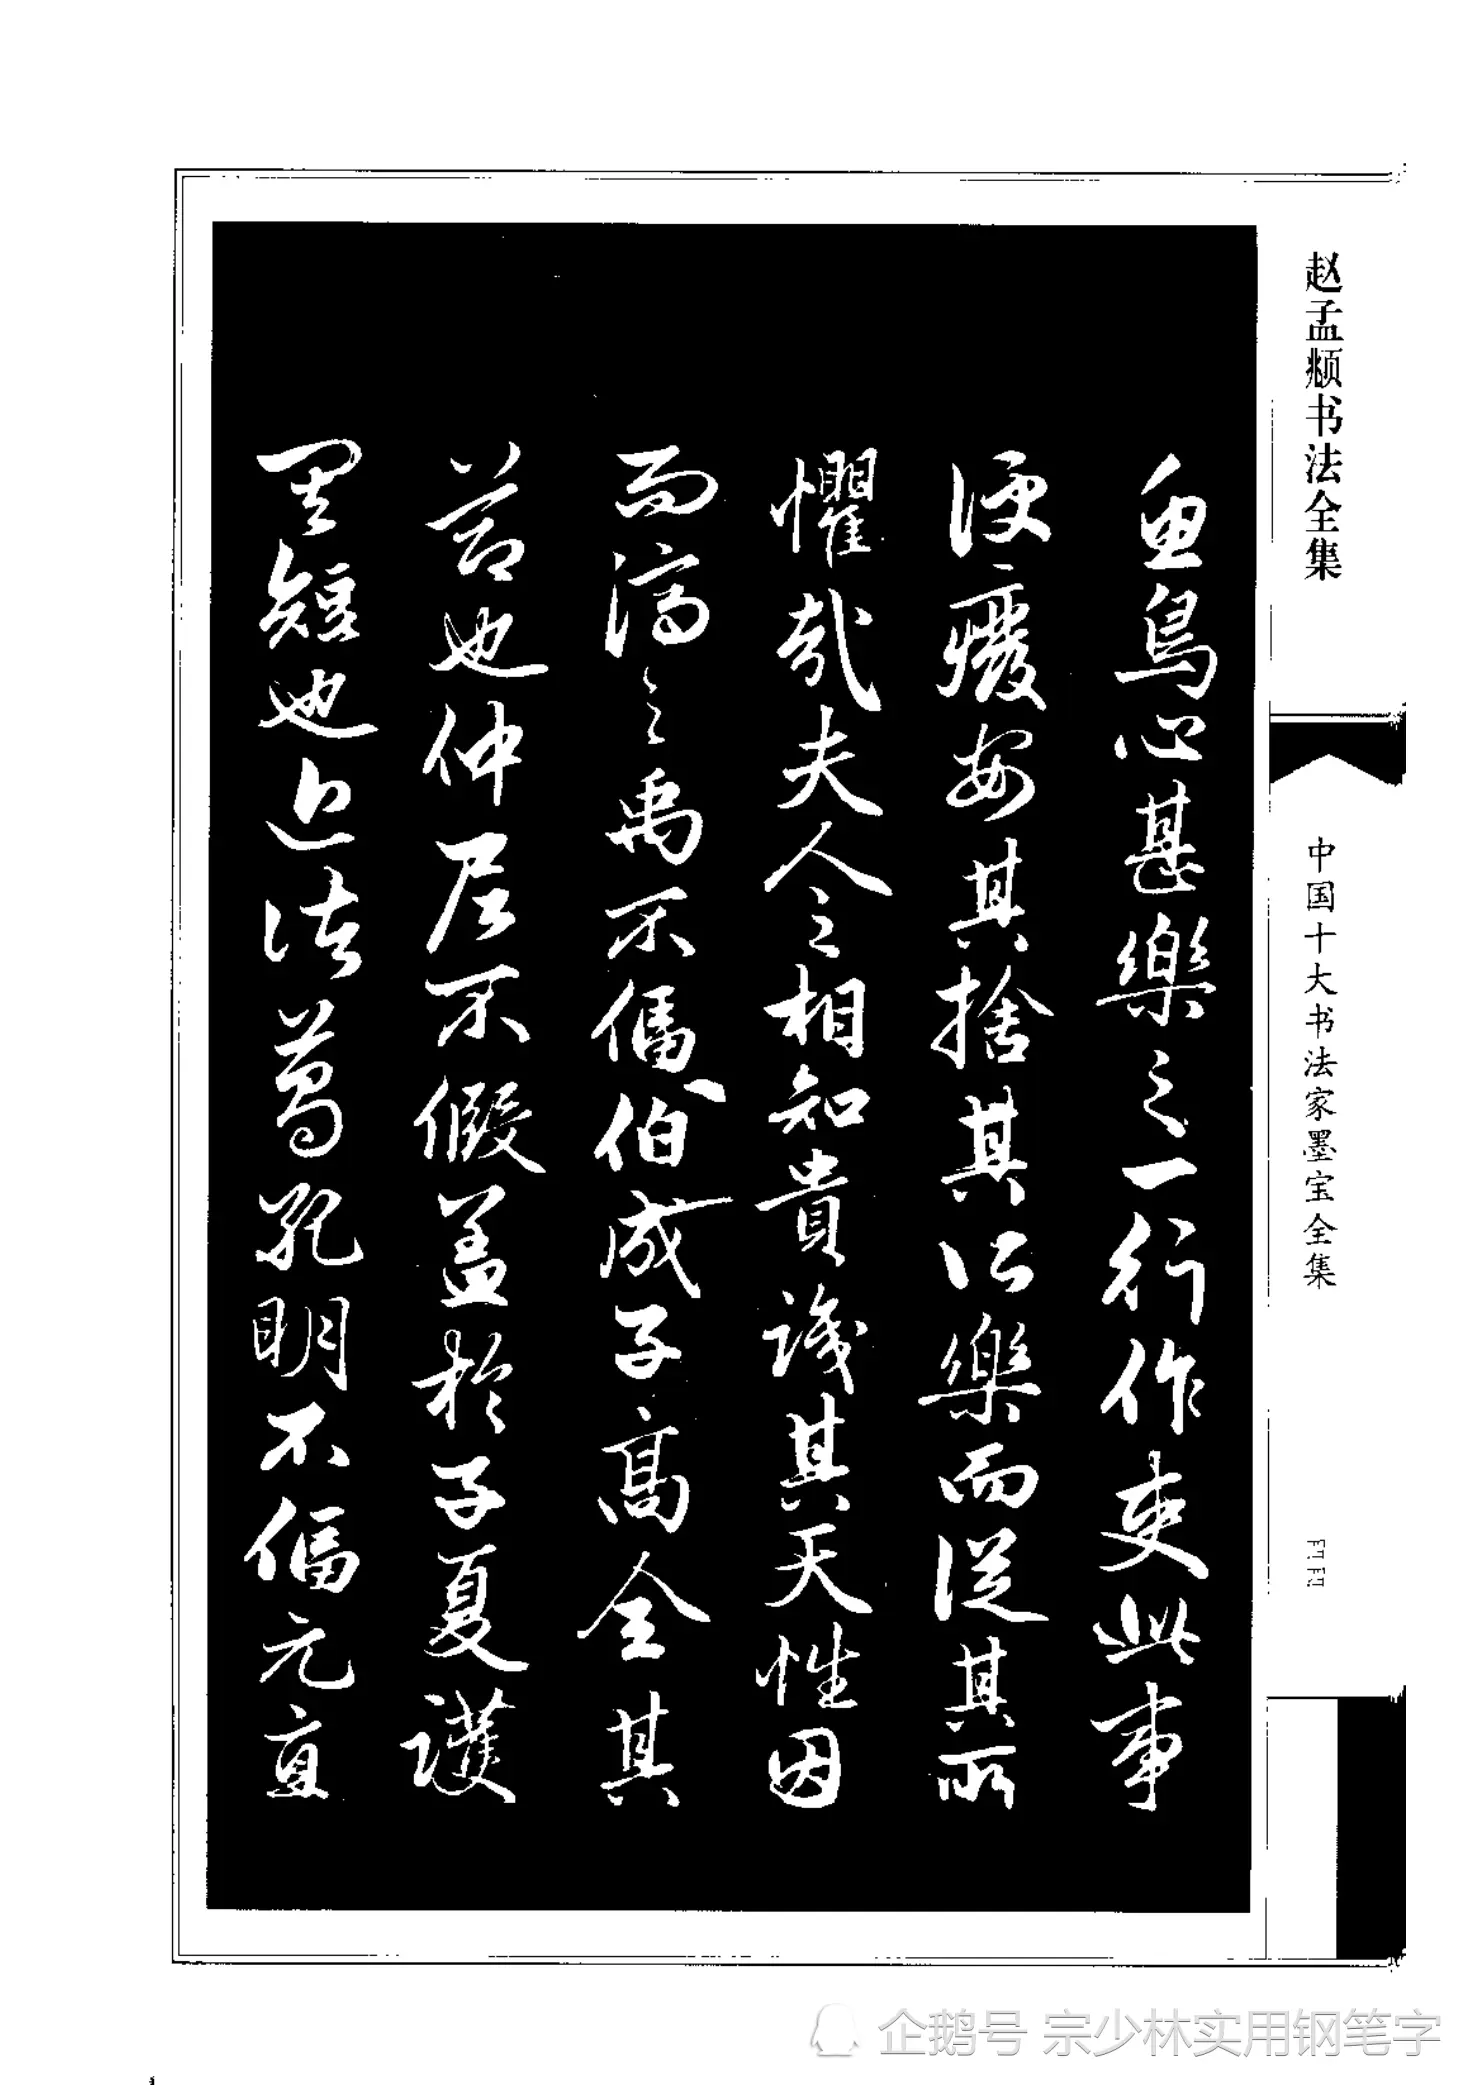 赵孟頫书法全集
中国十大书法家墨宝全集
魚鳥心甚樂之一行作吏此事
便廢安其捨其所樂而從其所
懼哉夫人之相知貴識其天性因
而濟之禹不偪伯成子高全其
節也仲尼不假盖於子夏護
其短也近諸葛孔明不偪元直
企鹅号 宗少林实用钢笔字